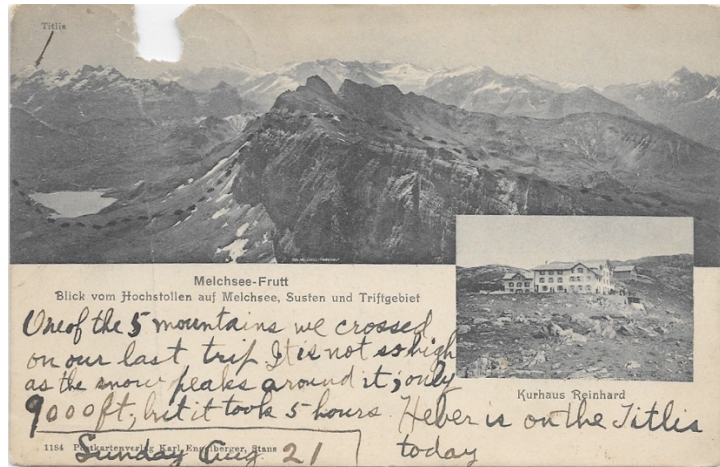 Titlis
Melchsee-Frutt
Blick vom Hochstollen auf Melchsee, Susten und Triftgebiet
One of the 5 mountains we crossed
on our last trip. It is not so high
as the snow peaks around it; only
9000 ft, but it took 5 hours.
Kurhaus Reinhard
Heber is on the Titlis
today
1184 Postkartenverlag Karl Engelberger, Stans
Sunday Aug 21